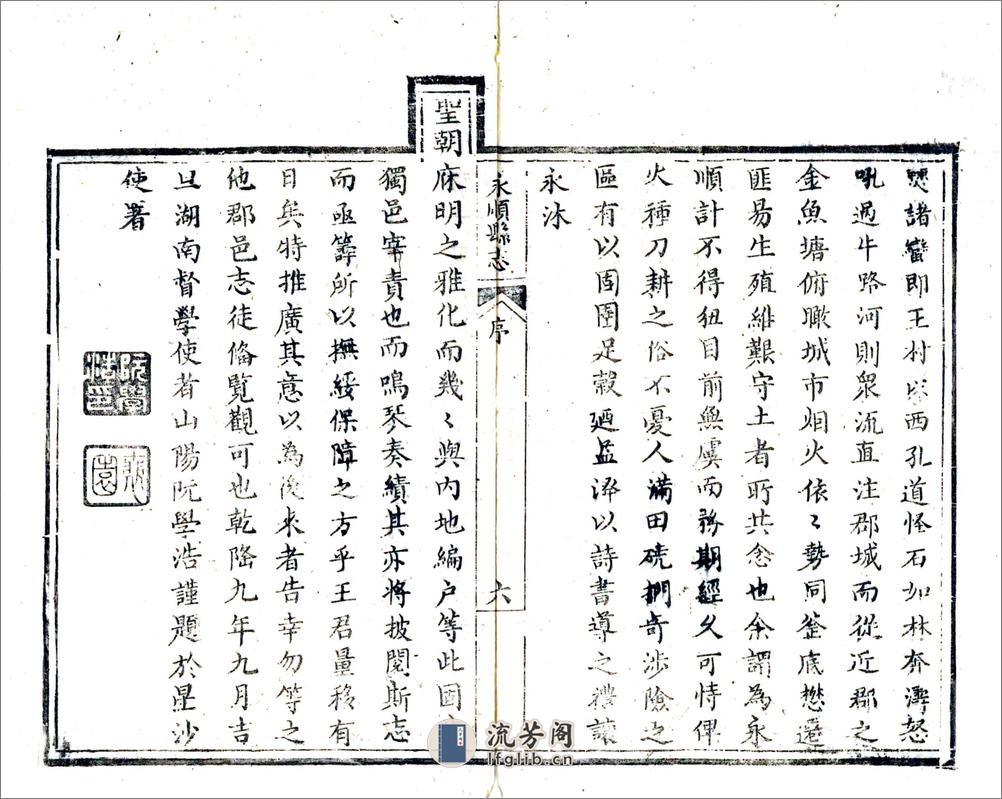 憩諸蠻即王村以西孔道怪石如林奔濤怒
吼過牛路河則衆流直注郡城而從近郡之
金魚塘俯瞰城市烟火依〻勢同釜底懋遷
匪易生殖維艱守土者所共念也余謂為永
順計不得狃目前無虞而務期經久可恃俾
火種刀耕之俗不憂人滿田磽捫奇涉險之
區有以固圉足穀廼益澤以詩書導之禮讓
永沐
聖朝庥明之雅化而幾〻與内地編户等此固
獨邑宰責也而鳴琴奏績其亦將披閱斯志
而亟籌所以撫綏保障之方乎王君量移有
日矣特推廣其意以為後来者告幸勿等之
他郡邑志徒偹覧觀可也乾隆九年九月吉
旦湖南督學使者山陽阮學浩謹題於星沙
使署
阮學
浩印
裴園
永順縣志
序
六
流芳阁
lfglib.cn